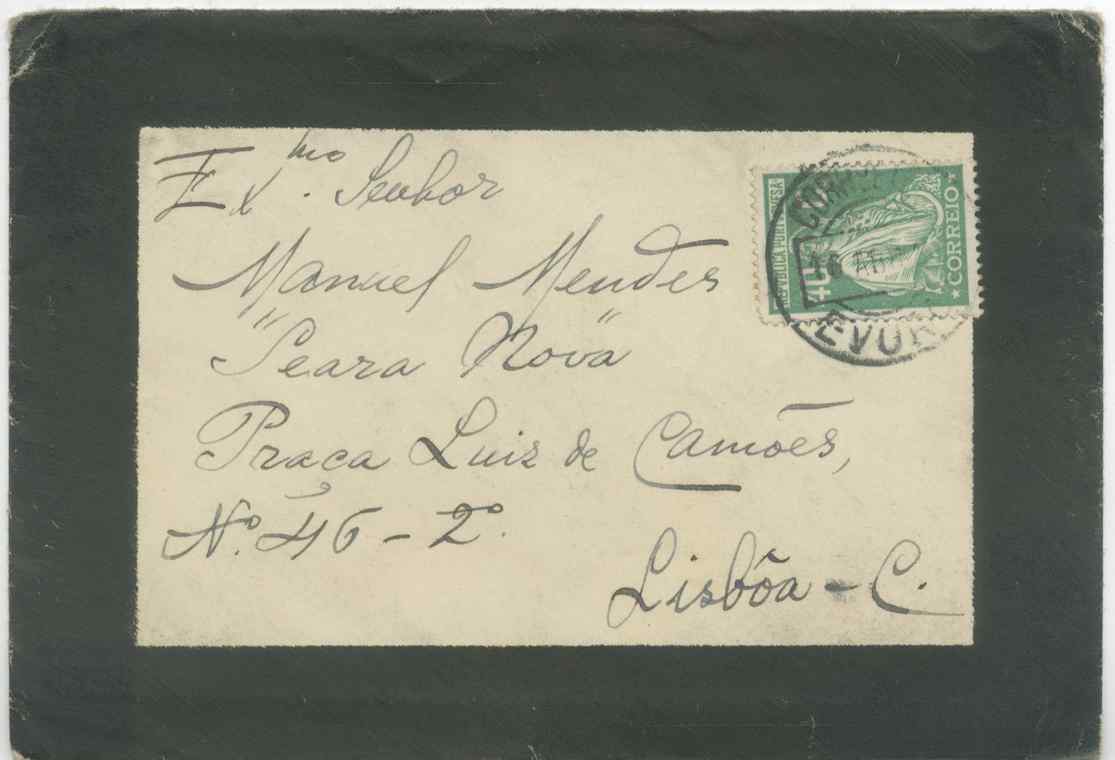 Exmo. Senhor
Manuel Mendes
"Seara Nova"
Praça Luiz de Camões,
Nº. 46 - 2º.
Lisbôa - C.
REPUBLICA PORTUGUESA
CORREIO
16
EVOR